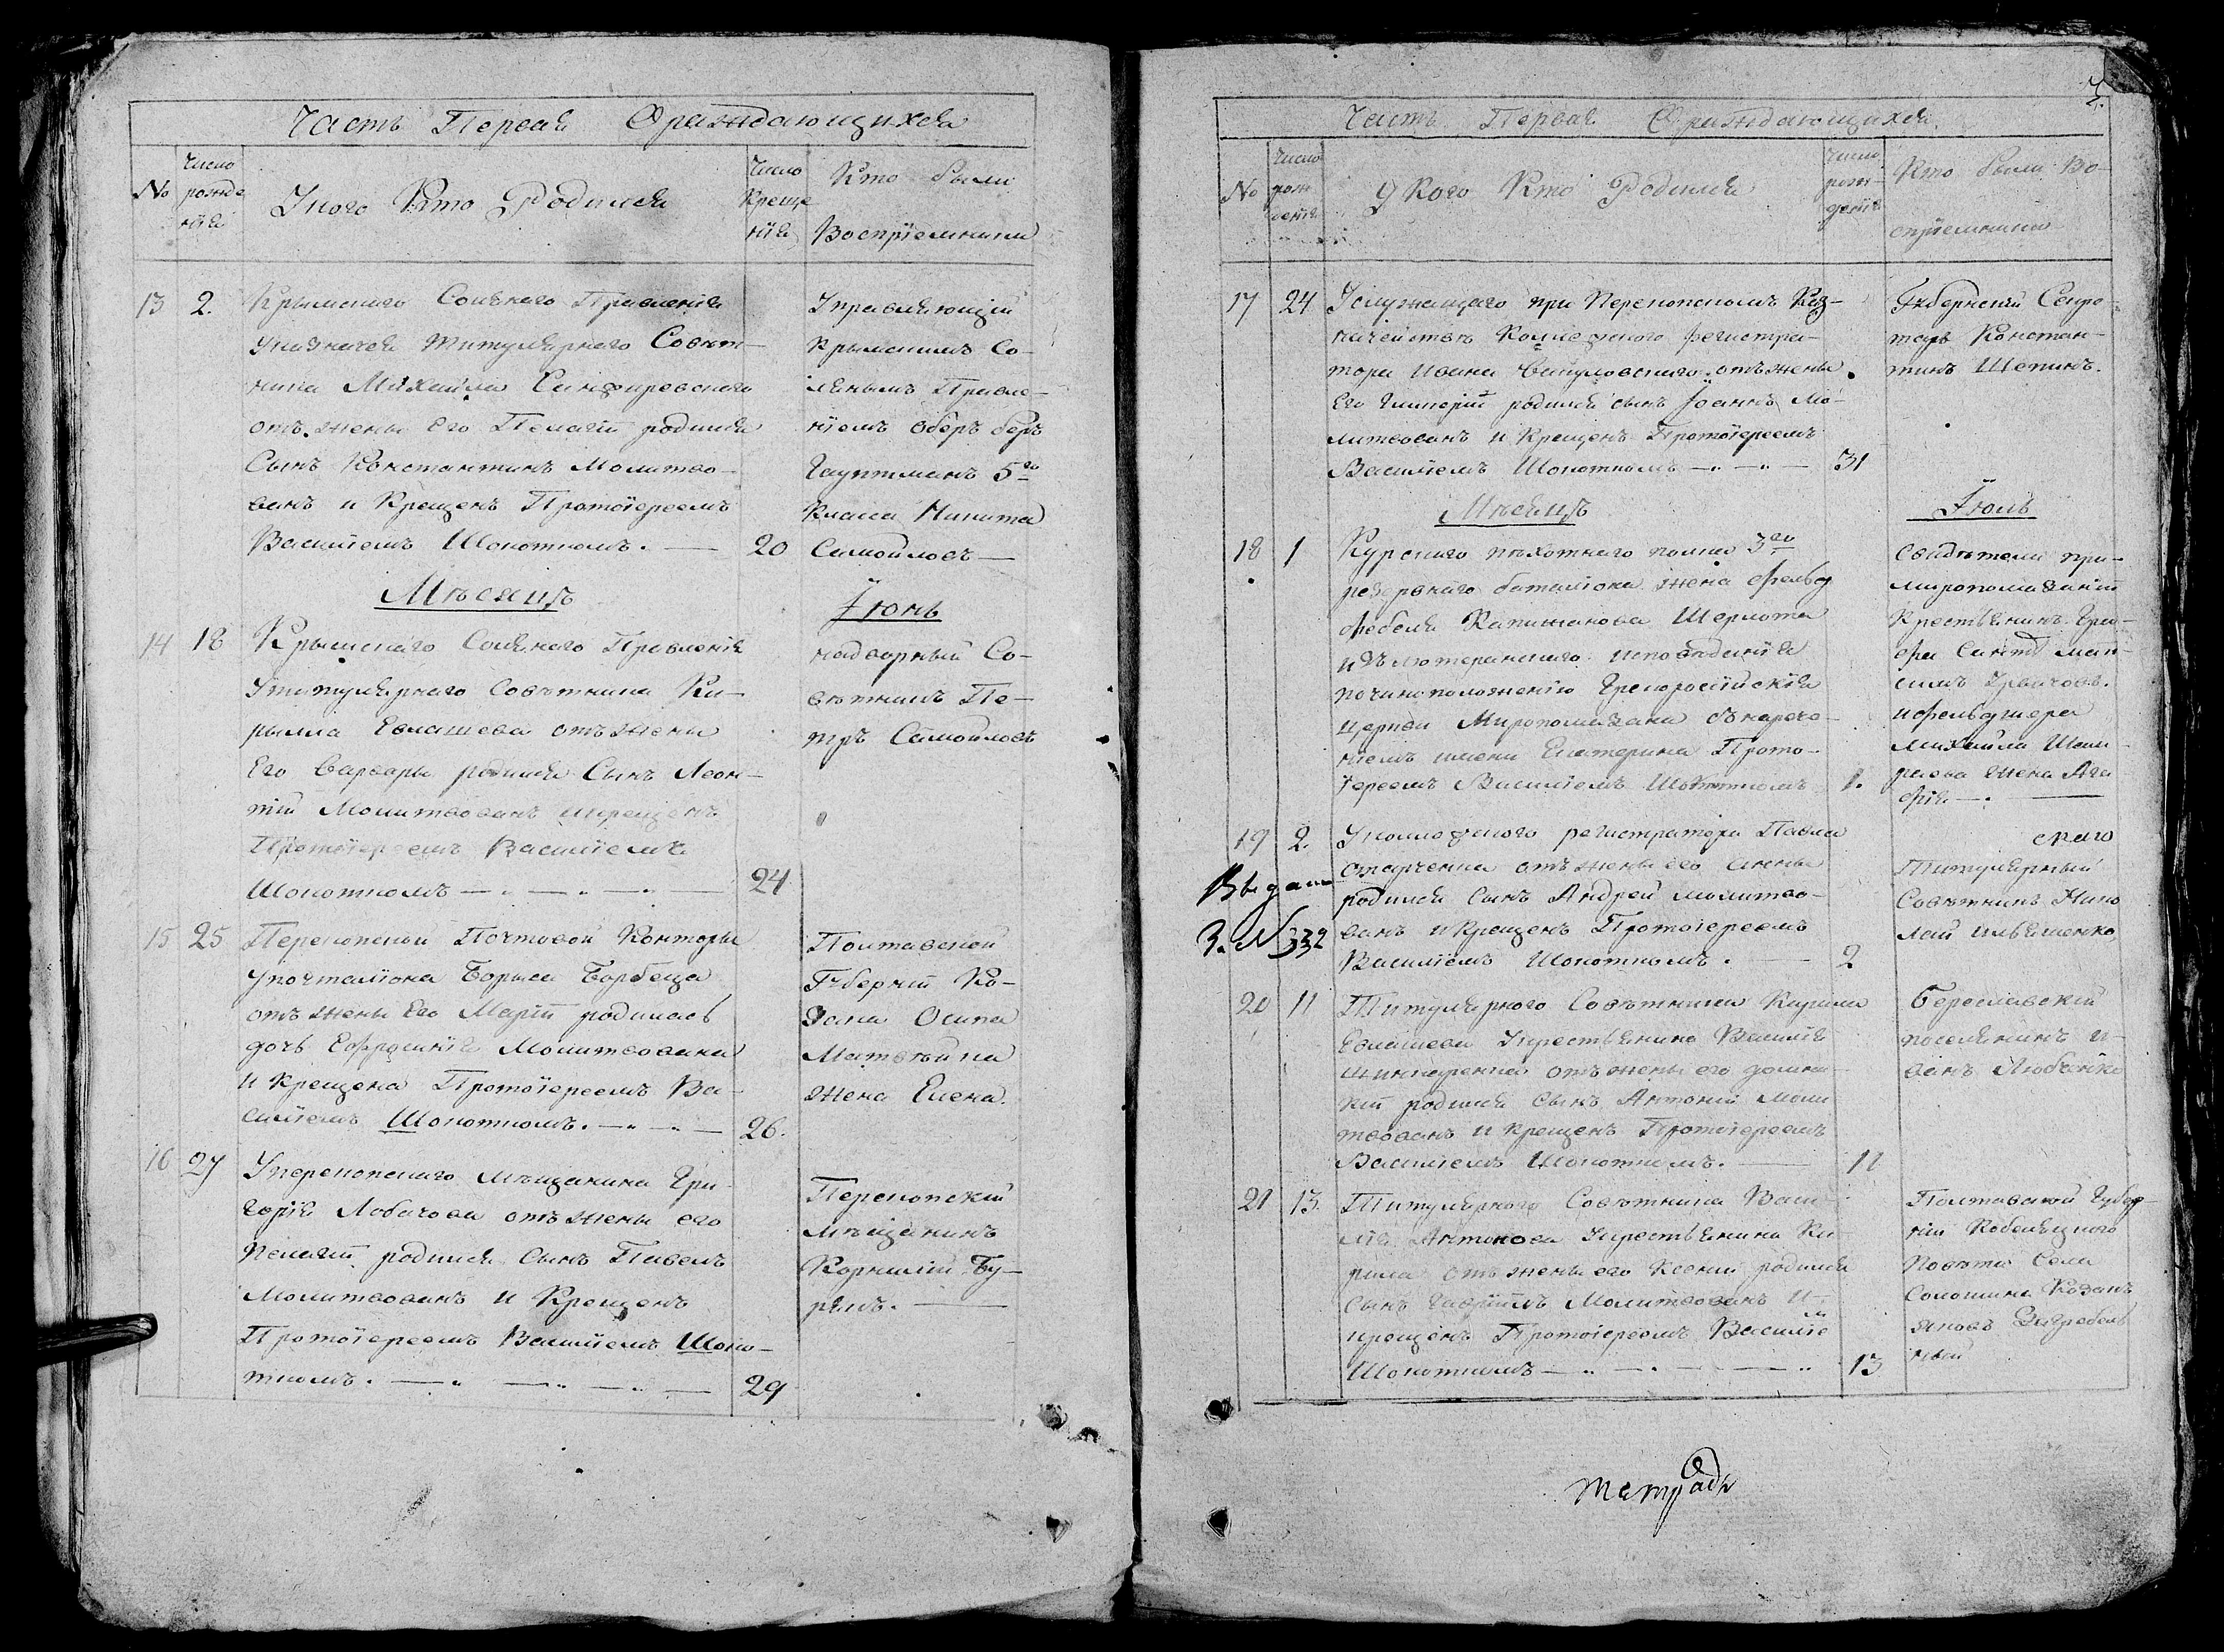 Часть Первая О раждающихся
№
Число рожденія
У кого Кто Родился
Число Крещенія
Кто были Воспріемники
13 2. Крымскаго Солянаго Правленія
у казначея Титулярнаго Совѣт-
ника Михайла
отъ жены Его Пелагіи родился
Сынъ Константинъ Молитво-
ванъ и Крещенъ Протоіереемъ
Василіемъ Шокоткомъ. — 20
Управляющій
Крымскимъ Со-
лянымъ Правле-
ніемъ Оберъ беръ
Гауптманъ 5го
Класса Никита
Самойловъ —
Мѣсяцъ Іюнь
14 18 Крымскаго Солянаго Правленія
у титулярнаго Совѣтника Ки-
рилла Евлашева отъ жены
Его Варвары родился Сынъ Леон-
тій Молитвованъ и крещенъ
Протоіереемъ Василіемъ
Шокоткомъ — 24
надворный Со-
вѣтникъ Пе-
тръ Самойловъ
15 25 Перекопской Почтовой Конторы
у почталіона Бориса Борбеца
отъ жены Его Маріи родилась
дочь Ефросинія Молитвована
и Крещена Протоіереемъ Ва-
силіемъ Шокоткомъ. — 26.
Полтавской
Губерніи Ко-
зака Осипа
жена Елена.
16 27 У перекопскаго мѣщанина Гри-
горія Лобачова отъ жены его
Пелагіи родился Сынъ Павелъ
Молитвованъ и Крещенъ
Протоіереемъ Василіемъ Шоко-
ткомъ. — 29
Перекопскій
мѣщанинъ
Корнилій Бу-
рякъ. —
3.
Часть Первая О раждающихся
№
Число рожденія
У Кого Кто Родился
Число рожденія
Кто были Во-
спріемники
17 24 У служащаго при Перекопскомъ Каз-
начействѣ Коллежского регистра-
тора Ивана отъ жены
Его Гликеріи родился сынъ Іоаннъ Мо-
литвованъ и Крещенъ Протоіереемъ
Василіемъ Шокоткомъ — 31
Губернскій Секре
тарь Констан-
тинъ Щепинъ.
Мѣсяцъ Іюль
18 1 Курскаго пѣхотнаго полка 3го
резервнаго баталіона жена фельд
фебеля Шерлота
изъ лютеранскаго исповѣданія
по чиноположенію Грекороссійскія
церкви Миропомазана съ нарече-
ніемъ имени Екатерина Прото-
іереемъ Василіемъ Шокоткомъ 1.
Свидѣтели при
миропомазаніи
Крестьянинъ
и фельдшера
Михайла
жена Ага
фія —
19 2. У коллежского регистратора Павла
Старченка отъ жены его Анны
родился Сынъ Андрей молитво-
ванъ и Крещенъ Протоіереемъ
Василіемъ Шокоткомъ. — 2
скаго
Титулярный
Совѣтникъ Нико
лай Ильяшенко
Выдано
3. № 332
20 11 Титулярного Совѣтника Кирила
Евлашева У крестьянина Василія
отъ жены его домни-
кіи родился Сынъ Антоній моли
твованъ и крещенъ Протоіереемъ
Василіемъ Шокоткомъ. — 11
Береславскій
поселянинъ И-
ванъ Любченко
21 13. Титулярного Совѣтника Васи-
лія Антонова У крестьянина Ки-
рила отъ жены его Ксеніи родился
Сынъ Гавріилъ Молитвованъ И
крещенъ Протоіереемъ Василіем
Шокоткомъ — 13
Полтавской Губер-
ніи Кобеляцкого
Повѣта Села
Солошина Козакъ
Яковъ
Тетрадь